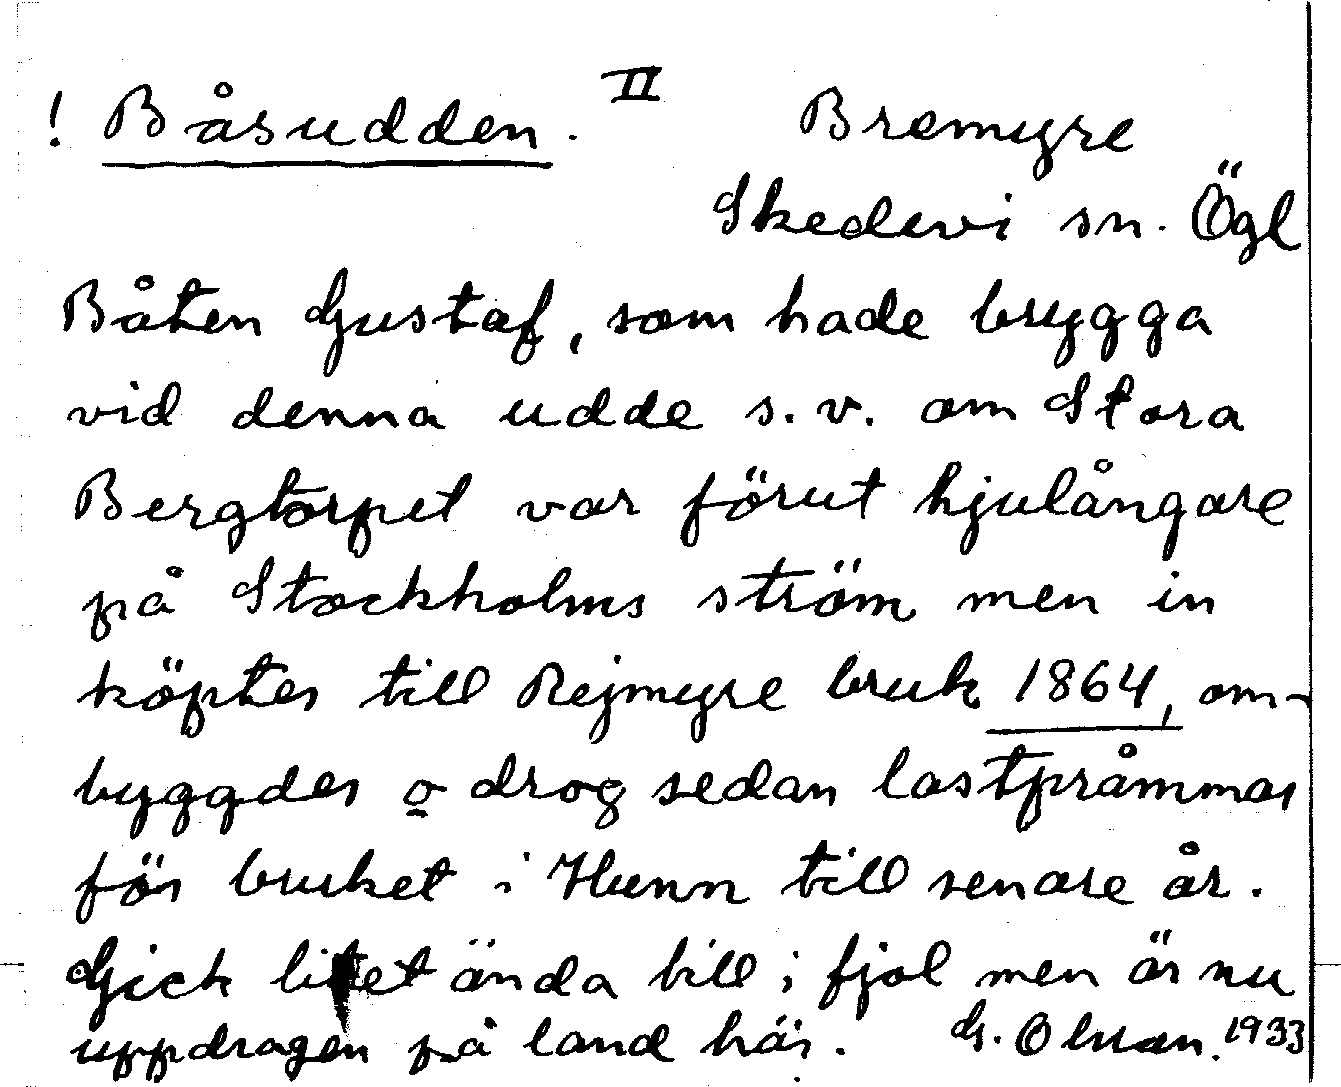 ! Båsudden. II Bremyre
Skedevi sn. Ögl
Båten Gustaf, som hade brygga
vid denna udde s.v. om Stora
Bergtorpet var förut hjulångare
på Stockholms ström men in
köptes till Rejmyre bruk 1864, om-
byggdes o drog sedan lastpråmmar
för bruket i Hunn till senare år.
Gick litet ända till i fjol men är nu
uppdragen på land här. G. Olsson. 1933